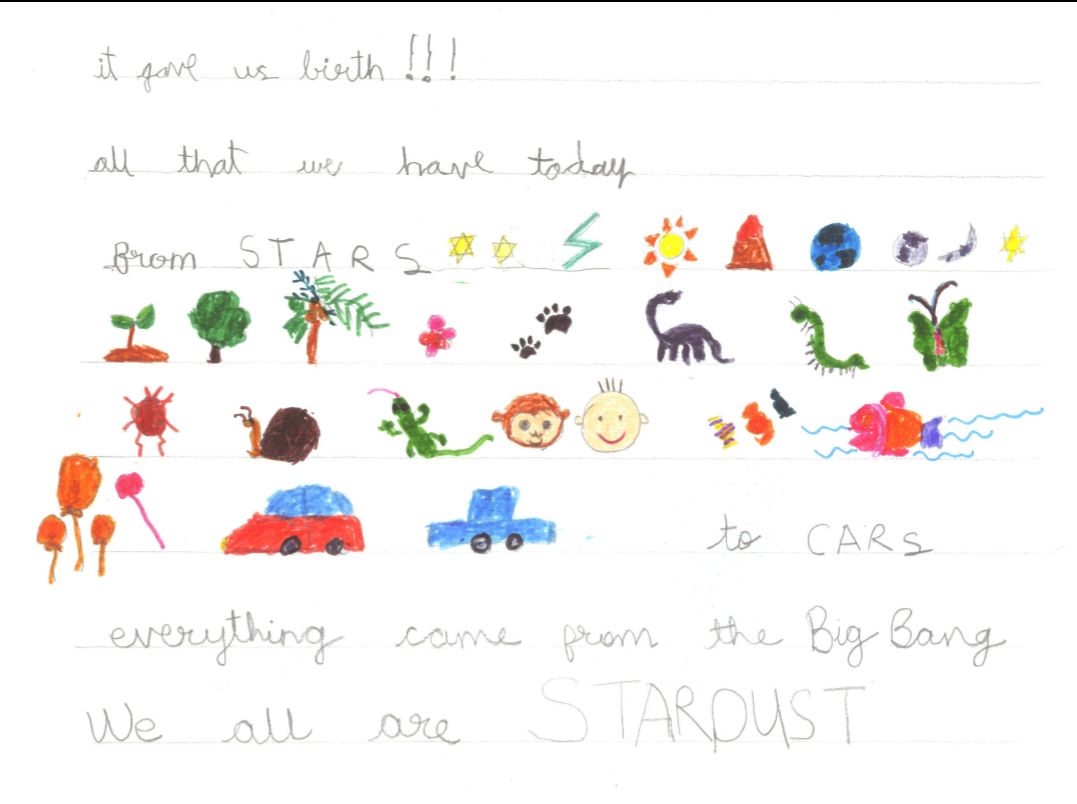 it gave us birth !!!
all that we have today
from STARS
to CARS
everything came from the Big Bang
We all are STARDUST